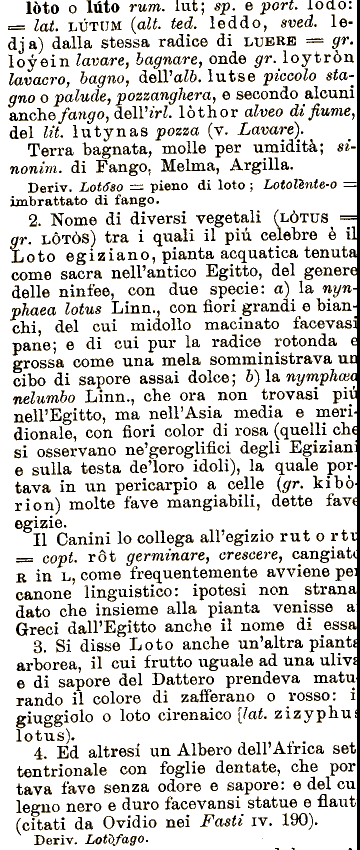 lòto o lúto rum. lut; sp. e port. lodo:
= lat. LÚTUM (alt. ted. leddo, sved. le-
dja) dalla stessa radice di LUERE = gr.
loýein lavare, bagnare, onde gr. loytròn
lavacro, bagno, dell'alb. lutse piccolo sta-
gno o palude, pozzanghera, e secondo alcuni
anche fango, dell'irl. lòthor alveo di fiume,
del lit. lutynas pozza (v. Lavare).
Terra bagnata, molle per umidità; si-
nonim. di Fango, Melma, Argilla.
Deriv. Lotóso = pieno di loto; Lotolènte-o =
imbrattato di fango.
2. Nome di diversi vegetali (LÒTUS =
gr. LÔTÒS) tra i quali il piú celebre è il
Loto egiziano, pianta acquatica tenuta
come sacra nell'antico Egitto, del genere
delle ninfee, con due specie: a) la nyn-
phaea lotus Linn., con fiori grandi e bian-
chi, del cui midollo macinato facevasi
pane; e di cui pur la radice rotonda e
grossa come una mela somministrava un
cibo di sapore assai dolce; b) la nymphæa
nelumbo Linn., che ora non trovasi piú
nell'Egitto, ma nell'Asia media e meri-
dionale, con fiori color di rosa (quelli che
si osservano ne'geroglifici degli Egiziani
e sulla testa de'loro idoli), la quale por-
tava in un pericarpio a celle (gr. kibò-
rion) molte fave mangiabili, dette fave
egizie.
Il Canini lo collega all'egizio rut o rtu
= copt. rôt germinare, crescere, cangiato
R in L, come frequentemente avviene per
canone linguistico: ipotesi non strana
dato che insieme alla pianta venisse a
Greci dall'Egitto anche il nome di essa
3. Si disse Loto anche un'altra pianta
arborea, il cui frutto uguale ad una uliva
e di sapore del Dattero prendeva matu
rando il colore di zafferano o rosso: i
giuggiolo o loto cirenaico (lat. zizyphus
lotus).
4. Ed altresí un Albero dell'Africa set
tentrionale con foglie dentate, che por
tava fave senza odore e sapore: e del cu
legno nero e duro facevansi statue e flaut
(citati da Ovidio nei Fasti IV. 190).
Deriv. Lotòfago.